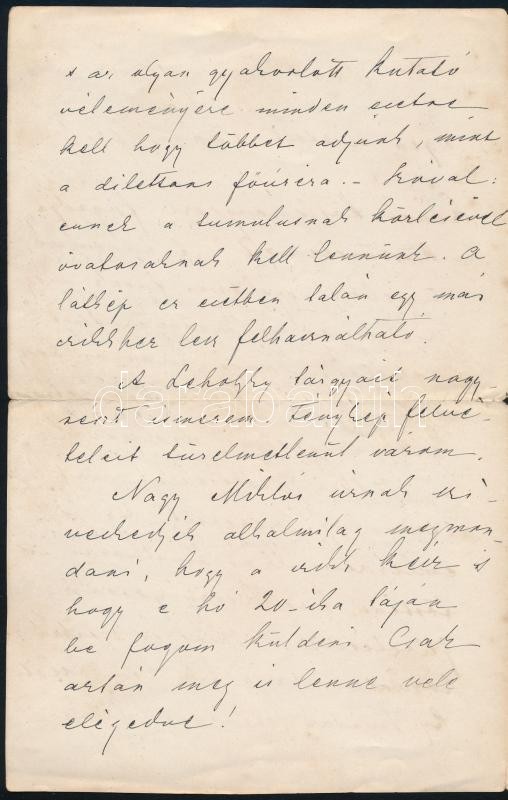 s az olyan gyakorlott kutató
véleményére minden esetre
kell hogy többet adjunk, mint
a dilettans főúréra. – Szóval:
ennek a tumulusnak közlésével
óvatosaknak kell lennünk. A
látkép ez esetben talán egy más
cikkhez lesz felhasználható.
A Lehotzky tárgyait nagy-
részt ismerem. Fénykép felvé-
teleit türelmetlenül várom.
Nagy Miklós úrnak szi-
veskedjék alkalmilag megmon-
dani, hogy a cikk kész is
hogy e hó 20-ika táján
be fogom küldeni Csak
aztán meg is lenne vele
elégedve!
darabanth